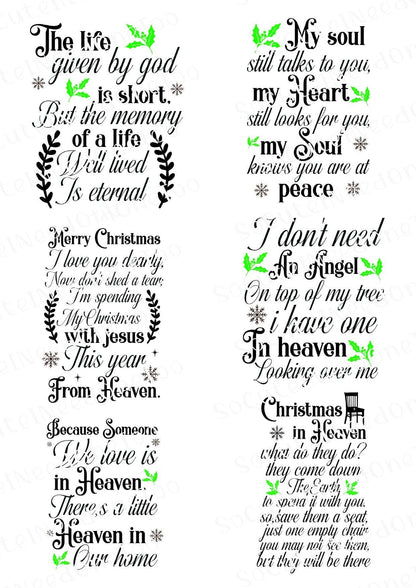 The life
given by god
is short,
But the memory
of a life
Well lived
Is eternal
My soul
still talks to you,
my Heart
still looks for you,
my Soul
knows you are at
peace
Merry Christmas
I love you dearly,
Now don't shed a tear,
I'm spending
My Christmas
with jesus
This year
From Heaven.
I don't need
An Angel
On top of my tree
i have one
In heaven
Looking over me
Because Someone
We love is
in Heaven
There's a little
Heaven in
Our home
Christmas
in Heaven
what do they do?
they come down
The Earth
to spend it with you.
so,save them a seat,
just one empty chair
you may not see them,
but they will be there